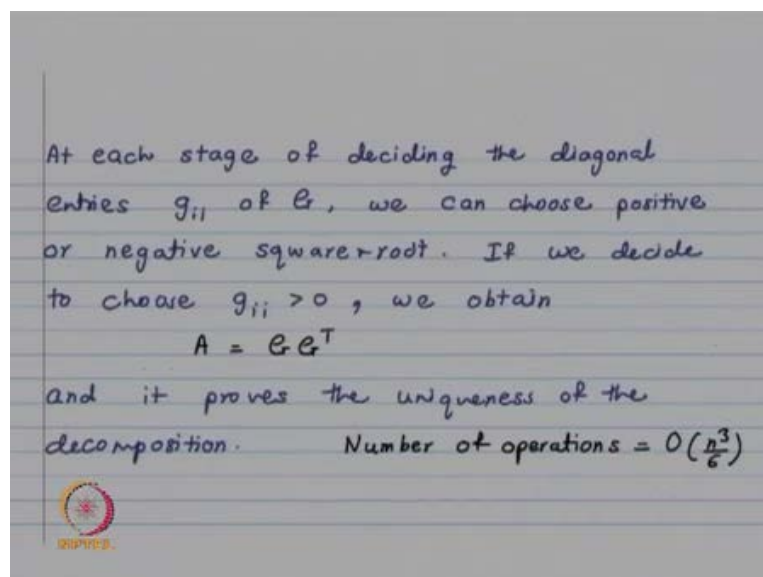 At each stage of deciding the diagonal
entries gᵢᵢ of G, we can choose positive
or negative square-root. If we decide
to choose gᵢᵢ >0, we obtain
A = G Gᵀ
and it proves the uniqueness of the
decomposition. Number of operations = O(n³/6)
NPTEL